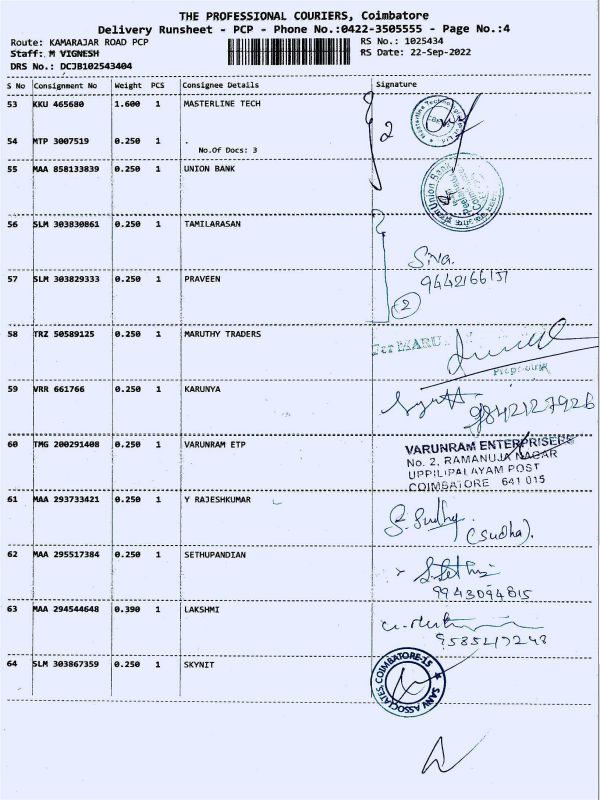 THE PROFESSIONAL COURIERS, Coimbatore
Delivery Runsheet - PCP - Phone No.:0422-3505555 - Page No.:4
Route: KAMARAJAR ROAD PCP
RS No.: 1025434
Staff: M VIGNESH
RS Date: 22-Sep-2022
DRS No.: DCJB102543404
S No Consignment No Weight PCS Consignee Details Signature
53 KKU 465680 1.600 1 MASTERLINE TECH
2
54 MTP 3007519 0.250 1 .
No.Of Docs: 3
55 MAA 858133839 0.250 1 UNION BANK
Union Bank
56 SLM 303830861 0.250 1 TAMILARASAN
Siva.
57 SLM 303829333 0.250 1 PRAVEEN
2
58 TRZ 50589125 0.250 1 MARUTHY TRADERS
For MARU
Proprietor
59 VRR 661766 0.250 1 KARUNYA
9842127926
60 TMG 200291408 0.250 1 VARUNRAM ETP
VARUNRAM ENTERPRISERS
No. 2, RAMANUJA NAGAR
UPPILIPALAYAM POST
COIMBATORE 641 015
61 MAA 293733421 0.250 1 Y RAJESHKUMAR
S. Sudha
(Sudha).
62 MAA 295517384 0.250 1 SETHUPANDIAN
9943094815
63 MAA 294544648 0.390 1 LAKSHMI
64 SLM 303867359 0.250 1 SKYNIT
SANV ASSOCIATES COIMBATORE-15